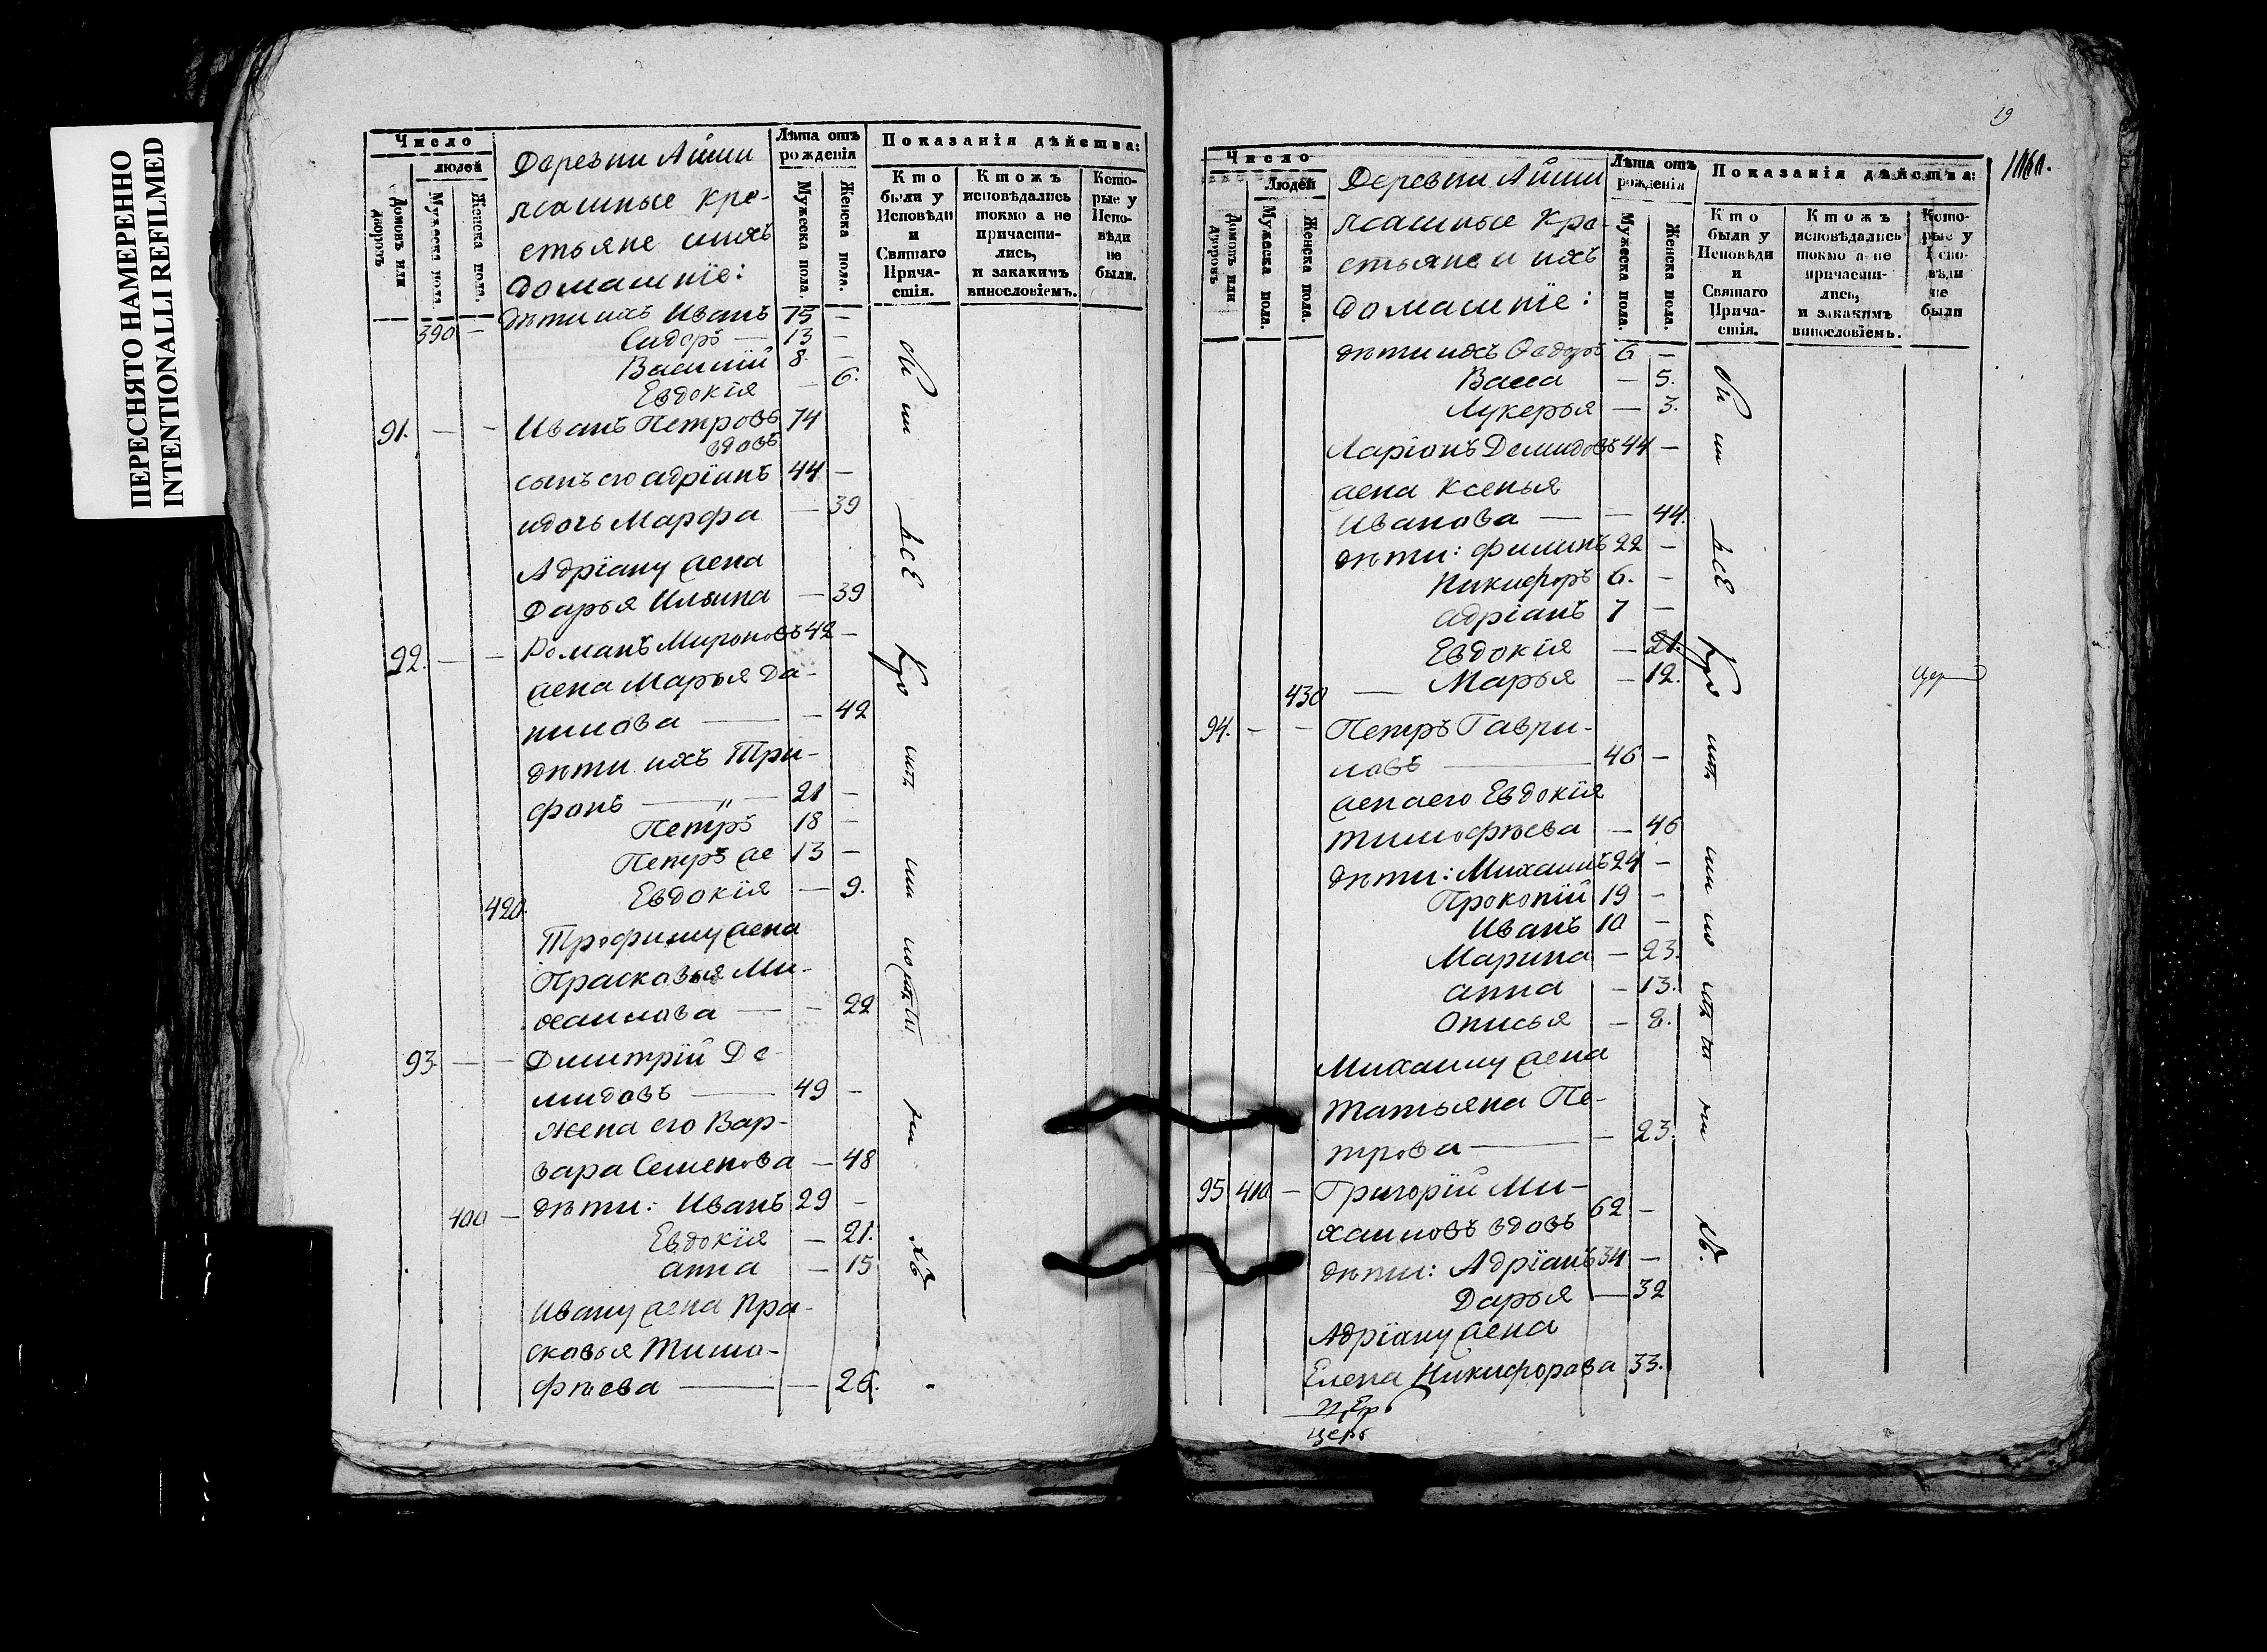 ПЕРЕСНЯТО НАМЕРЕННО
INTENTIONALLI REFILMED
Число
людей
Домовъ или дворовъ
Мужеска пола.
Женска пола.
Деревни Айши
ясашные кре-
стьяне и ихъ
домашнїе:
Лѣта отъ рожденія
Мужеска пола.
Женска пола.
Показанія дѣйства:
Кто были у Исповѣди и Святаго Прича-стія.
Ктожъ исповѣдались токмо а не причасти-лись, и закакимъ винословіемъ.
Кото-рые у Испо-вѣди не были.
дѣти ихъ Иванъ 15 —
390 — Сидоръ — 13 —
Василїй 8. —
Евдокїя — 6.
91. — — Иванъ Петровъ 74
вдовъ
сынъ его адрїанъ 44 —
идочь Марфа — 39
Адрїану жена
Дарья Ильина — 39
92. — — Романъ Мироновъ 42 —
жена Марья Да-
нилова — — 42
дѣти ихъ Три-
фонъ — 21 —
Петръ 18 —
Петръ же 13 —
420. Евдокїя — 9.
Трофиму жена
Прасковья Ми-
хаилова — — 22
93. — — Димитрїй Де-
мидовъ — 49 —
жена его Вар-
вара Семенова — 48
400 — дѣти: Иванъ 29 —
Евдокїя — 21.
анна — 15
Ивану жена Пра-
сковья Тимо-
фѣева — — 26.
19
Число
Людей
Домовъ или дворовъ
Мужеска пола.
Женска пола.
Деревни Айши
ясашные Кре-
стьяне и ихъ
домашнїе:
Лѣта отъ рожденія
Мужеска пола.
Женска пола.
Показанія дѣйства:
Кто были у Исповѣди и Святаго Прича-стія.
Ктожъ исповѣдались токмо а не причасти-лись, и закакимъ винословіемъ.
Кото-рые у Испо-вѣди не были
дѣти ихъ Ѳедоръ 6 —
Васса — 5.
Лукерья — 3.
Ларїонъ Демидовъ 44 —
жена Ксенья
Иванова — — 44.
дѣти: Филипъ 22 —
Никифоръ 6. —
адрїанъ 7 —
Евдокїя — 21.
430 — Марья — 12.
94. — — Петръ Гаври-
ловъ — 46 —
жена его Евдокїя
тимофѣева — 46
дѣти: Михаилъ 24 —
Прокопїй 19 —
Иванъ 10 —
Марина — 23.
анна — 13.
Онисья — 8.
Михаилу жена
Татьяна Пе-
трова — — 23.
95 410 — Григорїй Ми-
хаиловъ вдовъ 62 —
дѣти: Адрїанъ 34 —
Дарья — 32
Адрїану жена
Елена Никифорова 33.